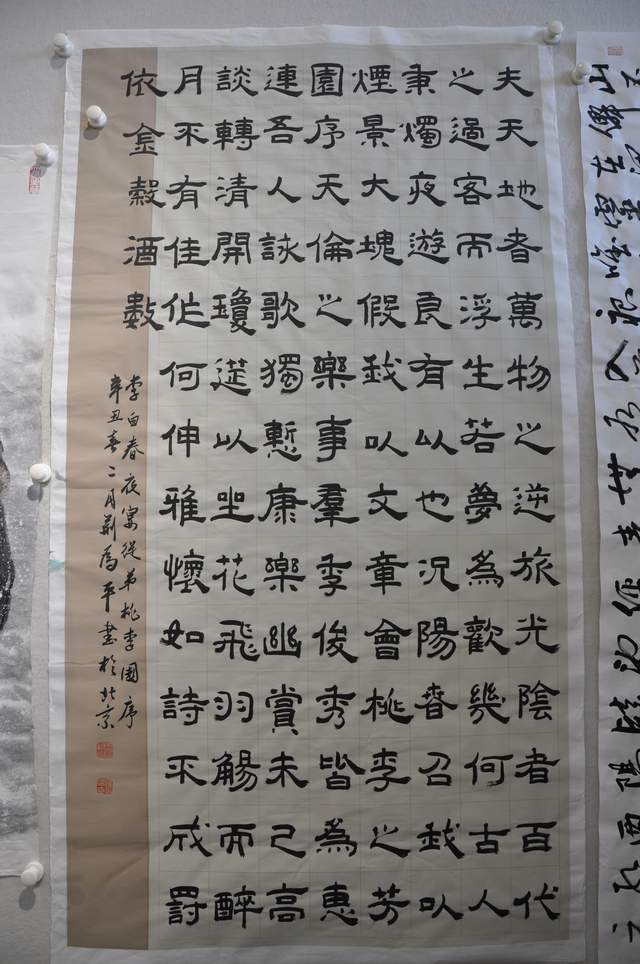 夫天地者萬物之逆旅光陰者百代
之過客而浮生若夢為歡幾何古人
秉燭夜遊良有以也況陽春召我以
煙景大塊假我以文章會桃李之芳
園序天倫之樂事羣季俊秀皆為惠
連吾人詠歌獨慙康樂幽賞未已高
談轉清開瓊筵以坐花飛羽觴而醉
月不有佳作何伸雅懷如詩不成罰
依金穀酒數
李白春夜宴從弟桃李園序
辛丑春二月荊為平書於北京